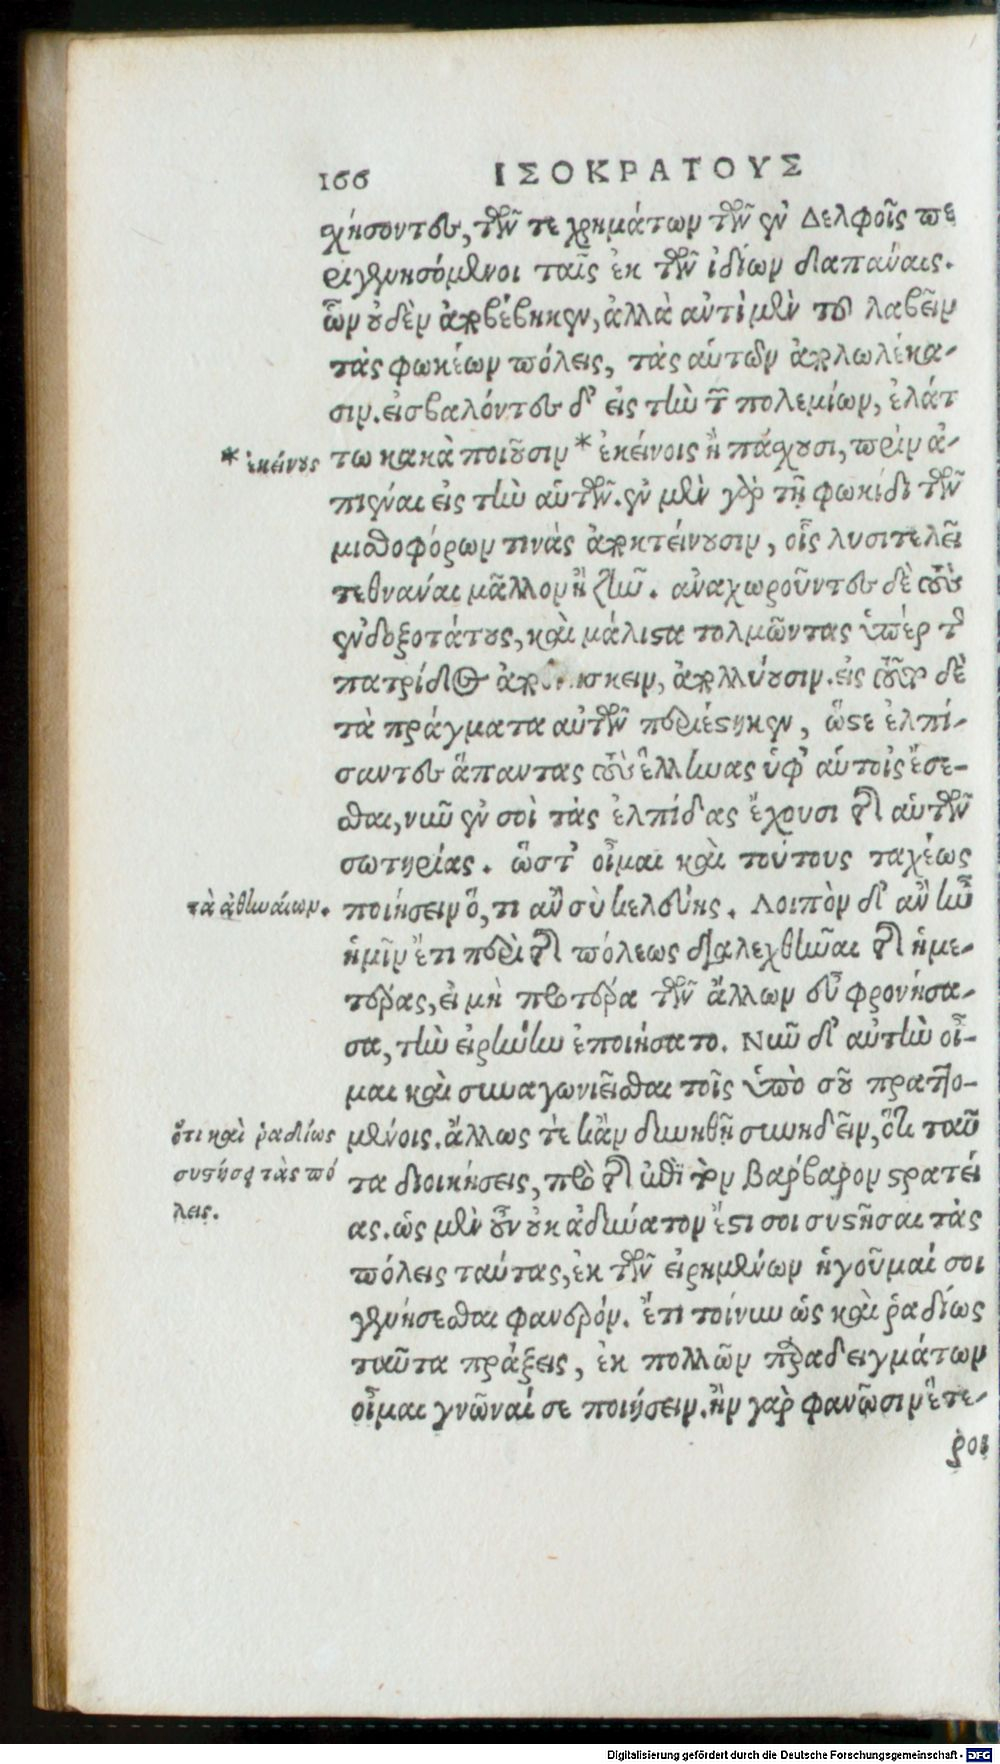 166 ΙΣΟΚΡΑΤΟΥΣ
χήσοντες, τῶν τε χρημάτων τῶν ἐν Δελφοῖς πε
ριγενησόμενοι ταῖς ἐκ τῶν ἰδίων δαπάναις.
ὧν οὐδὲν ἀποβέβηκεν, ἀλλὰ ἀντὶ μὲν τοῦ λαβεῖν
τὰς φωκέων πόλεις, τὰς αὑτῶν ἀπολωλέκα-
σιν. εἰσβαλόντες δ' εἰς τὴν τῶν πολεμίων, ἐλάτ
τω κακὰ ποιοῦσιν * ἐκείνοις ἢ πάχουσι, πρὶν ἀ-
* ἐκείνους
πιέναι εἰς τὴν αὑτῶν. ἐν μὲν γὰρ τῇ φωκίδι τῶν
μισθοφόρων τινὰς ἀποκτείνουσιν, οἷς λυσιτελεῖ
τεθνάναι μᾶλλον ἢ ζῆν. ἀναχωροῦντες δὲ τοὺς
ἐνδοξοτάτους, καὶ μάλιστα τολμῶντας ὑπὲρ τῆς
πατρίδος ἀπο...σκειν, ἀπολλύουσιν. εἰς τοῦτο δὲ
τὰ πράγματα αὐτῶν περιέστηκεν, ὥστε ἐλπί-
σαντες ἅπαντας τοὺς ἕλληνας ὑφ' αὑτοῖς ἔσε-
σθαι, νῦν ἐν σοὶ τὰς ἐλπίδας ἔχουσι τῆς αὑτῶν
σωτηρίας. ὥστ' οἶμαι καὶ τούτους ταχέως
τὰ ἀθηναίων.
ποιήσειν ὅ, τι ἂν σὺ κελεύῃς. Λοιπὸν δ' ἂν ἦν
ἡμῖν ἔτι περὶ τῆς πόλεως διαλεχθῆναι τῆς ἡμε-
τέρας, εἰ μὴ προτέρα τῶν ἄλλων εὖ φρονήσα-
σα, τὴν εἰρήνην ἐποιήσατο. Νῦν δ' αὐτὴν οἶ-
μαι καὶ συναγωνιεῖσθαι τοῖς ὑπὸ σοῦ πραττο-
ὅτι καὶ ῥαδίως
συστήσει τὰς πό
λεις.
μένοις. ἄλλως τὲ κἂν δυνηθῇ συνιδεῖν, ὅτι ταῦ
τα διοικήσεις, πρὸ τῆς ἐπὶ τὸν βάρβαρον στρατεί
ας. ὡς μὲν οὖν οὐκ ἀδύνατον ἔστι σοι συστῆσαι τὰς
πόλεις ταύτας, ἐκ τῶν εἰρημένων ἡγοῦμαί σοι
γενήσεσθαι φανερόν. ἔτι τοίνυν ὡς καὶ ῥαδίως
ταῦτα πράξεις, ἐκ πολλῶν παραδειγμάτων
οἶμαι γνῶναί σε ποιήσειν. ἢν γὰρ φανῶσιν ἕτε-
ροι
Digitalisierung gefördert durch die Deutsche Forschungsgemeinschaft - DFG